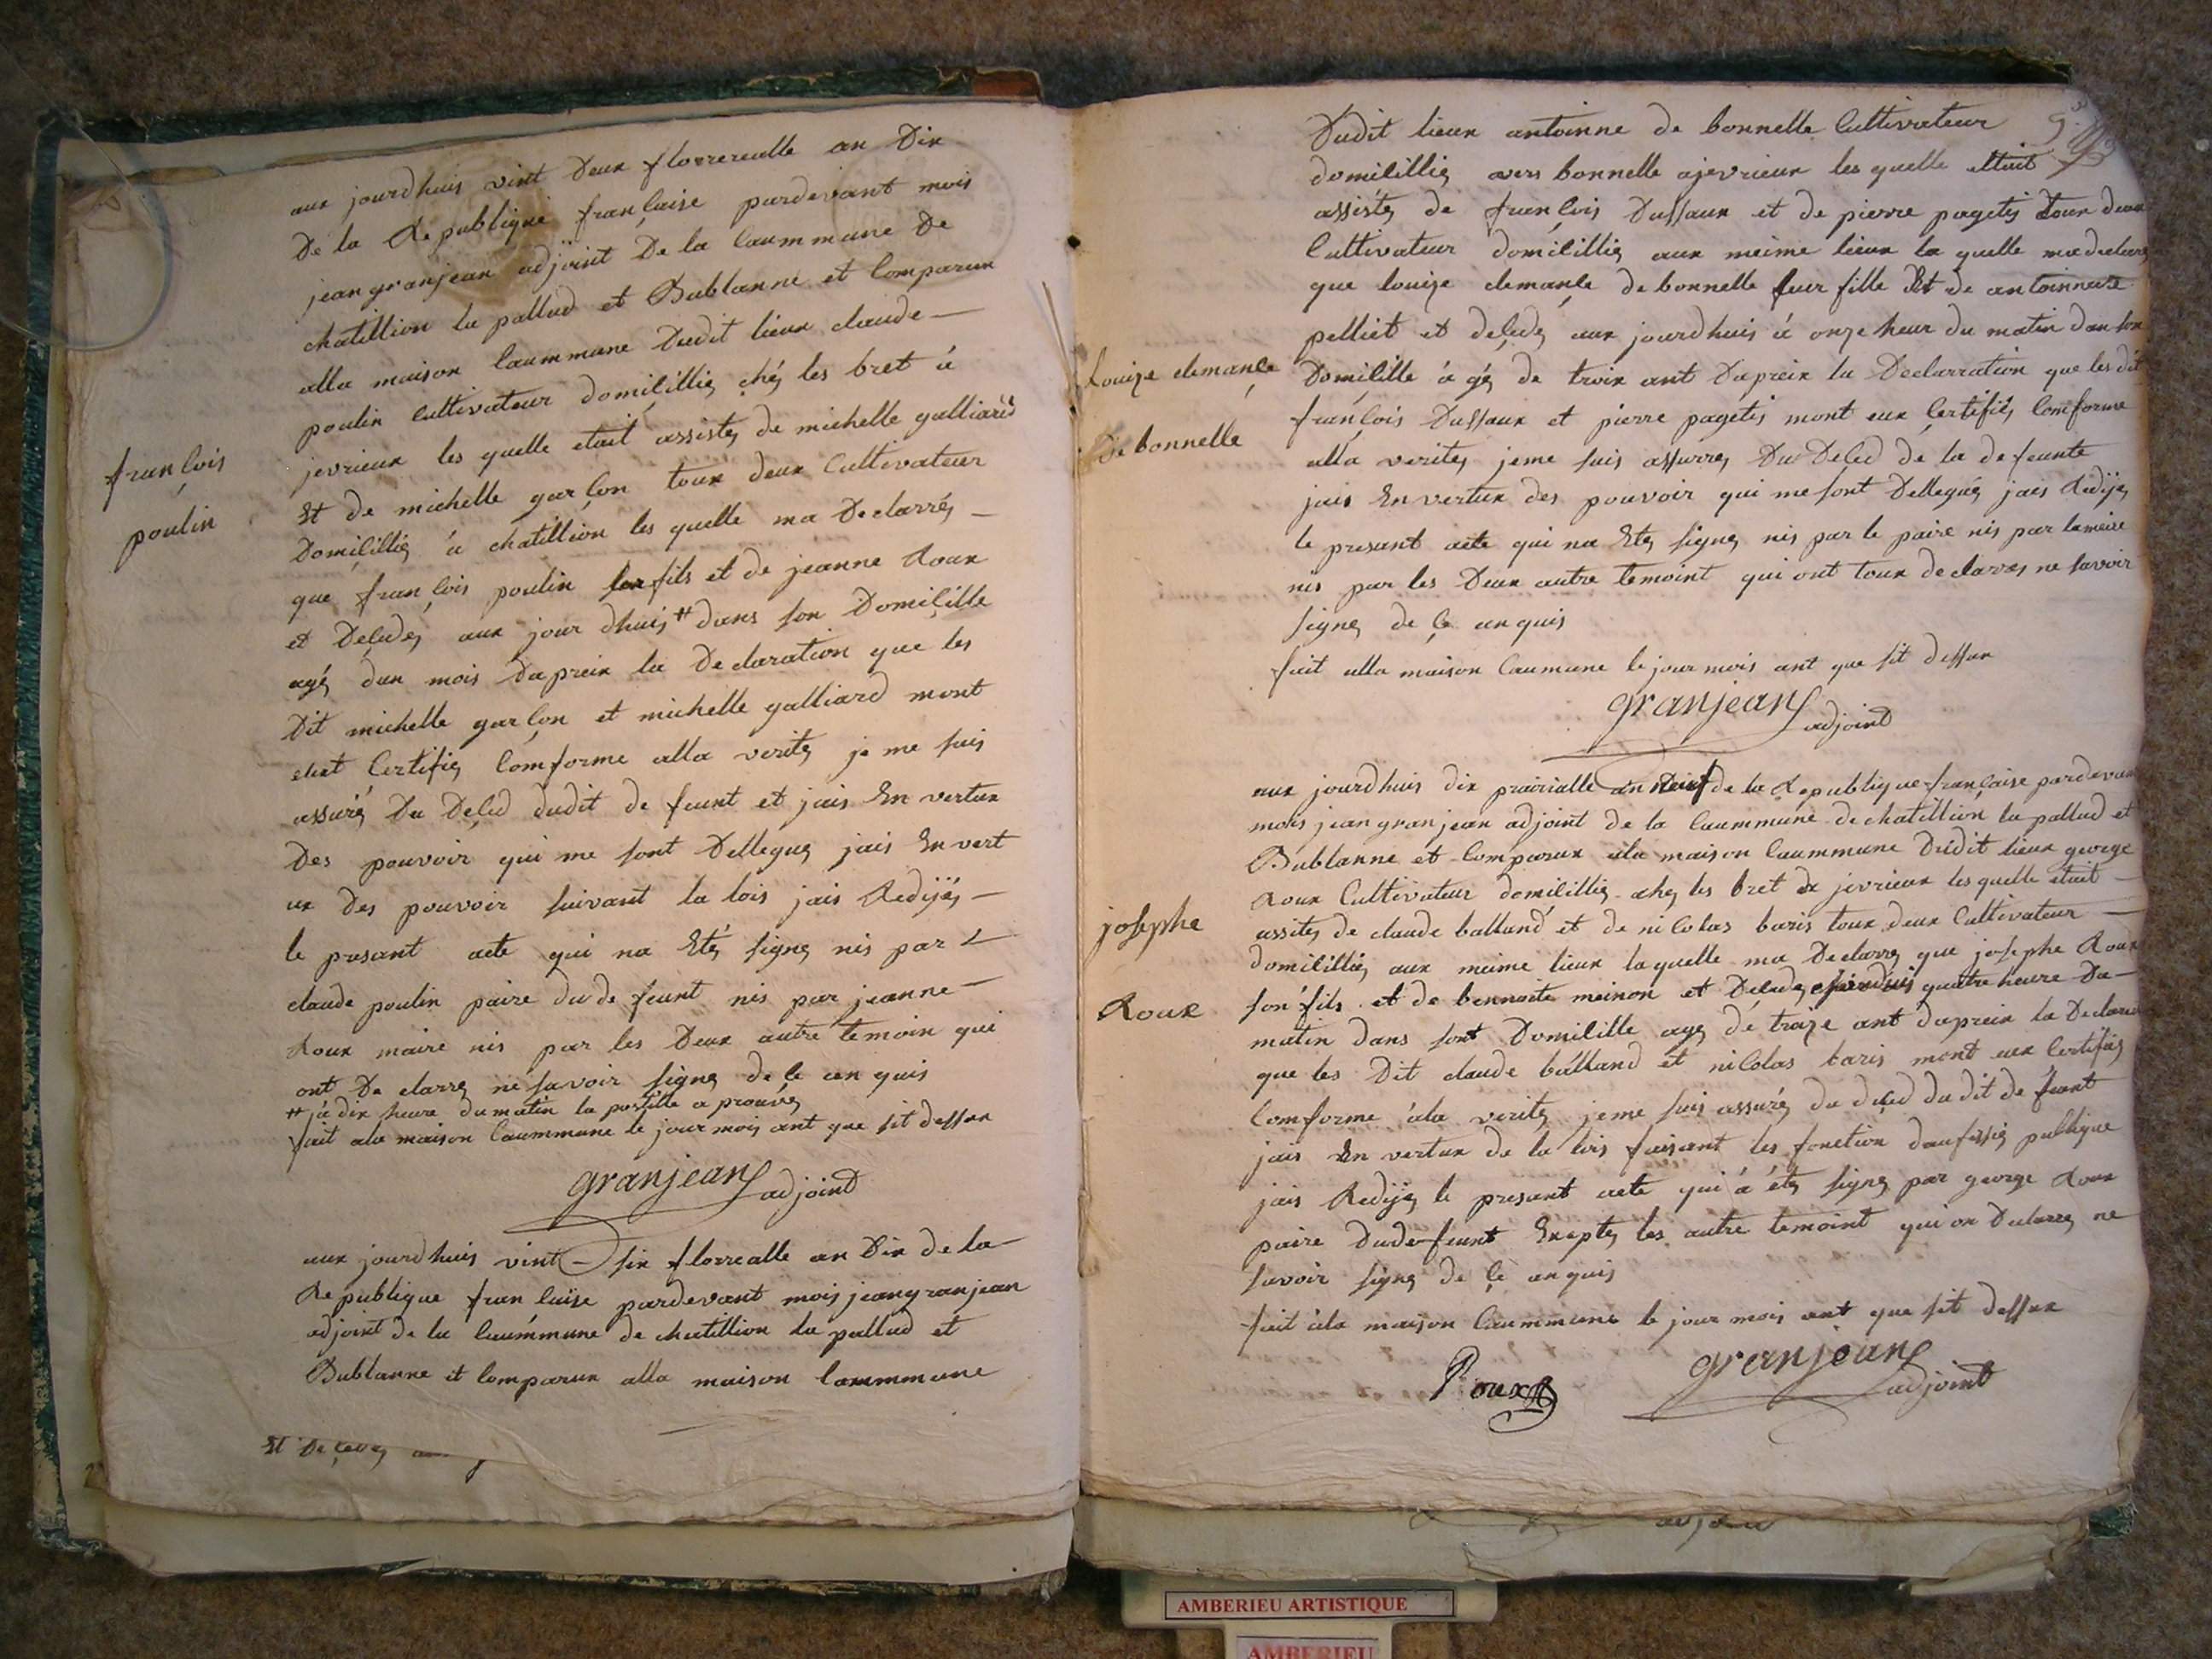 françois
poulin
aux jourdhuis vint deux florrerealle an dix
de la Republique française pardevant mois
jean granjean adjoint de la Caummune de
chatillion la pallud et Bublanne et Comparux
alla maison Caummune dudit lieux claude
poulin Cultivateur domiçillig chéz les bret à
jevrieux les quelle etait assistez de michelle galliard
Et de michelle garçon toux deux Cultivateur
Domiçillig à chatillion les quelle ma Declarréz
que françois poulin son fils et de jeanne Roux
et Deçedez aux jour dhuis # dans son Domiçille
agéz dun mois Dapreix la Declaration que les
Dit michelle garçon et michelle galliard mont
eut Certifiez Comforme alla veritez je me suis
assuré Du Deçed dudit de feunt et jais En vertux
Des pouvoir qui me sont Dellegué jais En vert
ux des pouvoir suivant la lois jais Redijéz
le presant acte qui na Etéz signez nis par
claude poulin paire du de feunt nis par jeanne
Roux maire nis par les Deux autre temoin qui
ont Declarrez ne savoir signez de çe enquis
# à dix heure du matin la postille a prouvéz
fait ala maison Caummune le jour mois ant que sit dessux
granjean adjoint
aux jourdhuis vint six florrealle an Dix de la
Republique française pardevant mois jean granjean
adjoint de la Caummune de chatillion la pallud et
Bublanne et Comparux alla maison Caummune
Et Deçedez
Dudit lieux antoinne de bonnelle Cultivateur
domilillig vers bonnelle ajevrieux les quelle ettait
assistéz de françois Dussaux et de pierre pagetis toux deux
Cultivateur domilillig aux meime lieux la quelle ma declarez
que louize clemançe de bonnelle leur fille Et de antoinnette
pelliet et deçedez aux jourdhuis à onze heur du matin dan son
Louize clemançe
De bonnelle
Domilille à géz de troix ant Dapreix la Declarration que les dit
françois Dussaux et pierre pagetis mont eux Çertifiéz Comforme
alla veritez jeme suis assurrez Du Deçed de la de feunte
jais En vertux des pouvoir qui me sont Dellegué jais Redijez
le presant acte qui na Etez signez nis par le paire nis par lameire
nis par les Deux autre temoint qui ont toux declarrez ne savoir
signez de çe an quis
fait alla maison Caumune le jour mois ant que sit dessux
granjean adjoint
aux jourdhuis dix prairialle an dix de la Republique française pardevant
mois jean granjean adjoint de la Caummune de chatillion la pallud et
Bublanne et Comparux ala maison Caummune Dudit lieux george
Roux Cultivateur domilillig chez les bret de jevrieux les quelle etait
josephe
Roux
assitez de claude balland et de nicolas baris toux deux Cultivateur
domilillig aux meime lieux laquelle ma Declarrez que josephe Roux
son fils et de bennoite meinon et Deçedez quatre heure Du
matin dans sont Domilille agez de traize ant dapreix la Declaration
que les Dit claude balland et nicolas baris mont eux Certifiez
Comforme àla veritez jeme suis assuré du deçed dudit de feunt
jais En vertux de la lois faisant les fonction daufissiez publique
jais Redijez le presant acte qui à étéz signez par george Roux
paire dude feunt Exeptez les autre temoint qui on Declarrez ne
savoir signez de çe anquis
fait àla maison Caummune le jour mois ant que sit dessux
Roux granjean adjoint
AMBERIEU ARTISTIQUE
AMBERIEU